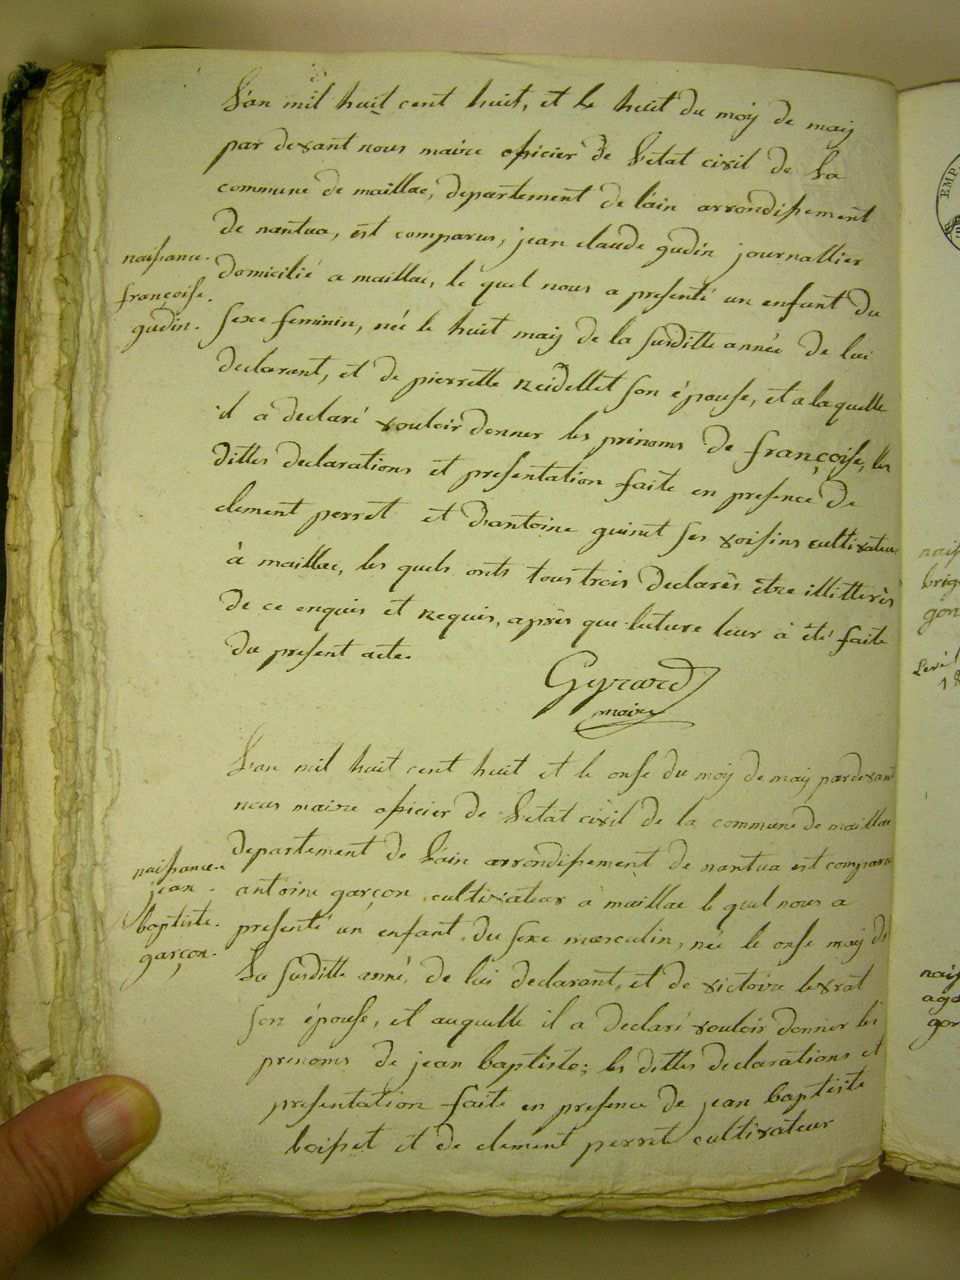 L'an mil huit cent huit, et le huit du moij de maij
par devant nous maire oficier de L'état civil de La
commune de maillac, departement de l'ain arrondissement
de nantua, est comparus, jean claude gudin journallier
naissance.
françoise.
gudin.
domicilié a maillac, le quel nous a presenté un enfant du
sexe feminin, née le huit maij de la susditte année de lui
declarant, et de pierrette Reidellet son épouse, et a laquelle
il a declaré vouloir donner les prénoms de françoise, les
dittes declarations et presentation faite en presence de
clement perret et d'antoine guinet ses voisins cultivateur
à maillac, les quels onts tous trois declarés être illitterés
de ce enquis et Requis, après que luture leur à été faite
du present acte.
Geyrard
maire
L'an mil huit cent huit et le onse du moij de maij pardevant
nous maire oficier de L'état civil de la commune de maillac
departement de L'ain arrondissement de nantua est comparu
naissance
jean
baptiste.
garçon.
antoine garçon, cultivateur à maillac le quel nous a
presenté un enfant du sexe masculin, née le onse maij de
La susditte année, de lui declarant, et de victoire levrat
son épouse, et auquelle il a declaré vouloir donner les
prenoms de jean baptiste; les dittes declarations et
presentation faite en presence de jean baptiste
boisset et de clement perret cultivateur
EMP
nais
brig
gon
nais
aga
gon